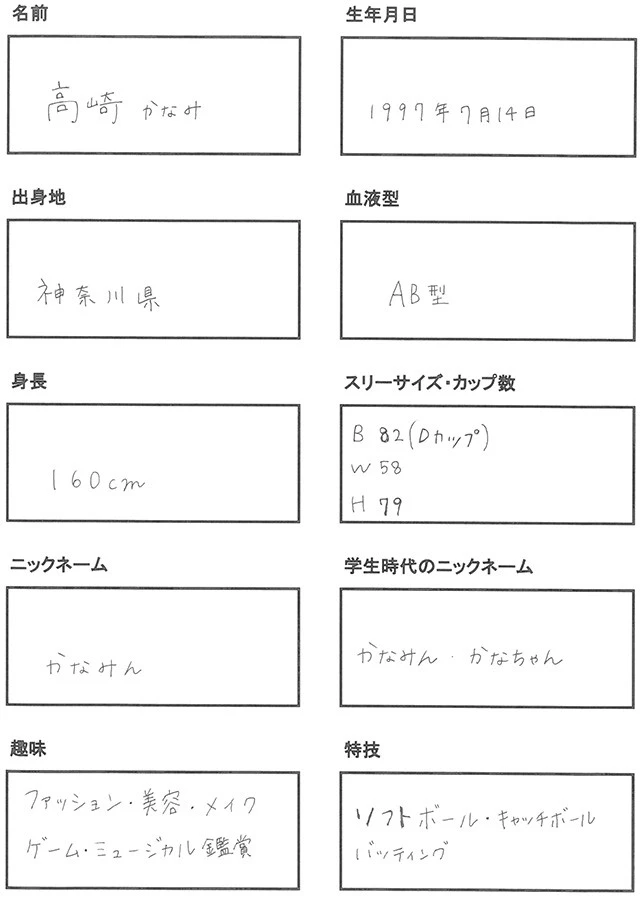 名前
高崎 かなみ
生年月日
1997年7月14日
出身地
神奈川県
血液型
AB型
身長
160cm
スリーサイズ・カップ数
B 82(Dカップ)
W 58
H 79
ニックネーム
かなみん
学生時代のニックネーム
かなみん・かなちゃん
趣味
ファッション・美容・メイク
ゲーム・ミュージカル鑑賞
特技
ソフトボール・キャッチボール
バッティング